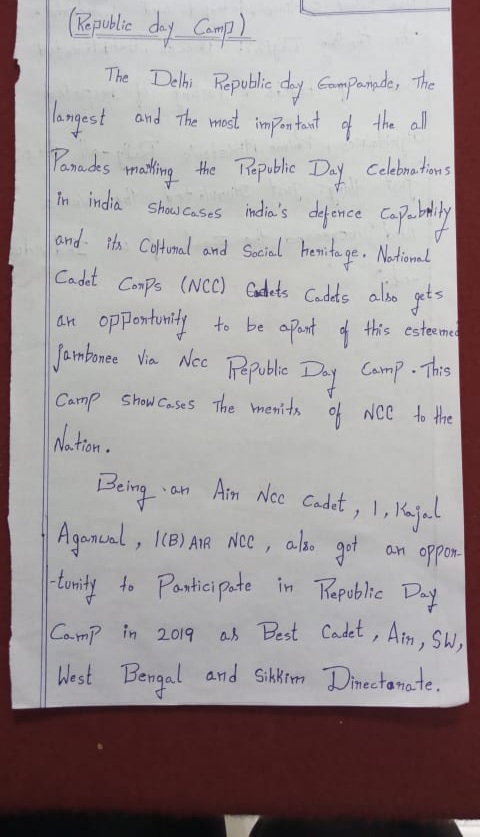 (Republic day Camp)
The Delhi Republic day Gamparade, The
largest and The most important of the all
Parades marking the Republic Day Celebrations
in india showcases india's defence capability
and its Coltural and Social heritage. National
Cadet Corps (NCC) Cadets Cadets also gets
an opportunity to be apart of this esteemed
jamboree via Ncc Republic Day Camp. This
Camp Showcases The merits of NCC to the
Nation.
Being an Air Ncc Cadet, I, Kajal
Agarwal, 1(B) AIR NCC, also got an oppor-
-tunity to Participate in Republic Day
Camp in 2019 as Best Cadet, Air, SW,
West Bengal and Sikkim Directorate.